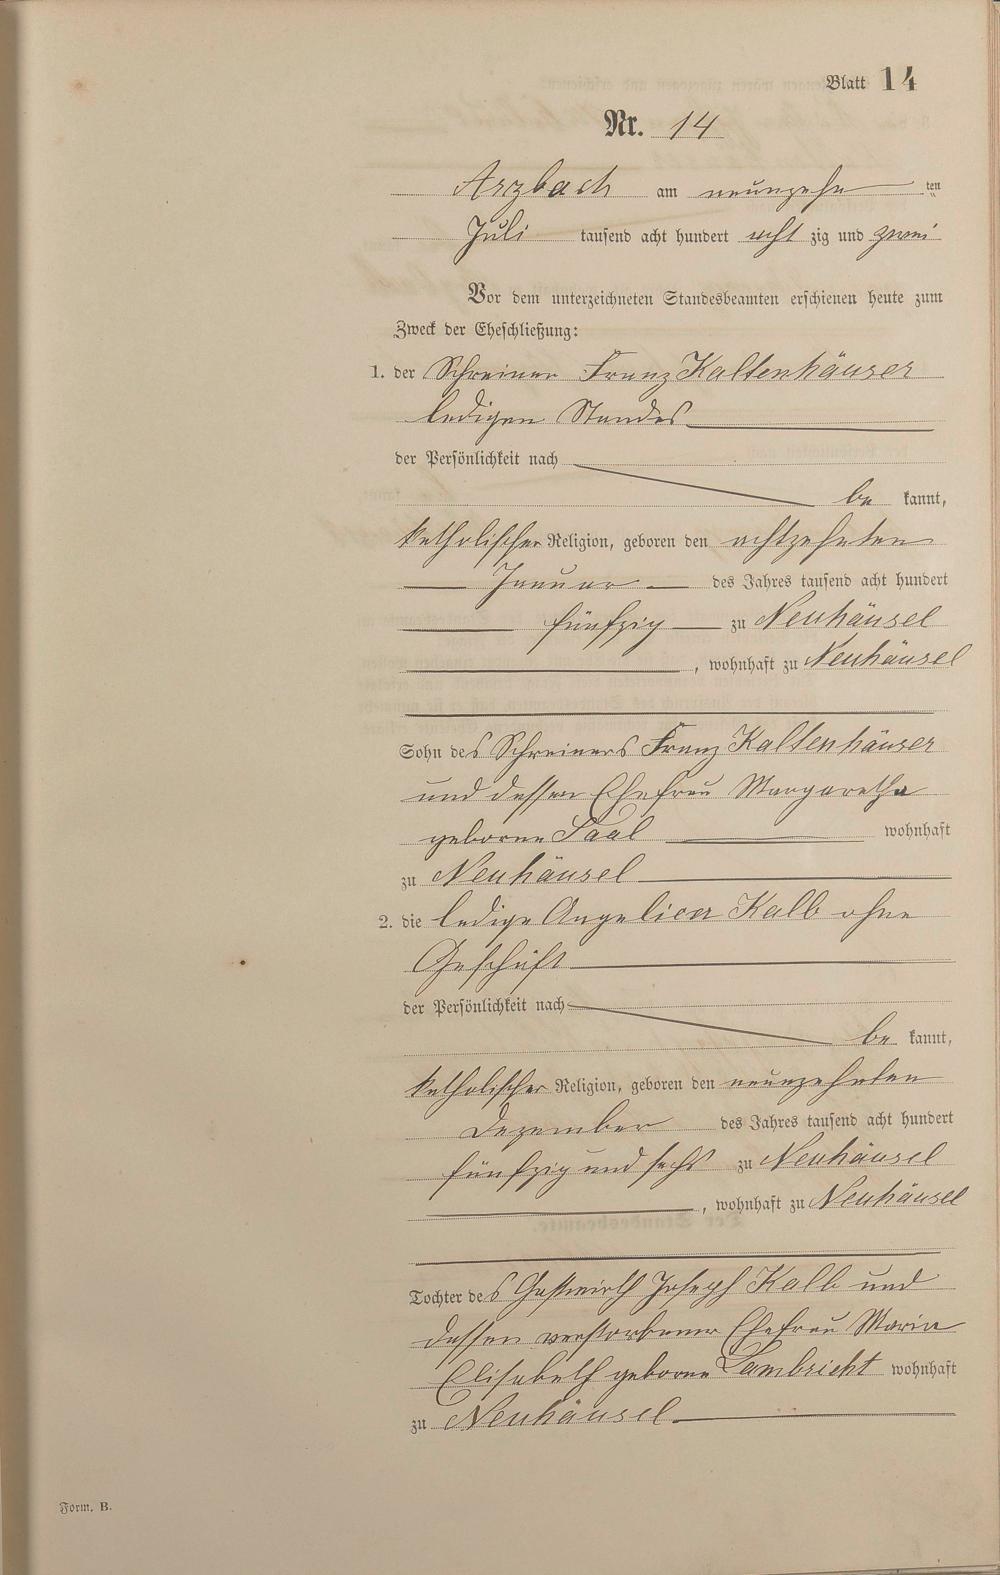 Blatt 14
Nr. 14
Arzbach am neunzehnten
Juli tausend acht hundert achtzig und zwei
Vor dem unterzeichneten Standesbeamten erschienen heute zum
Zweck der Eheschließung:
1. der Schreiner Franz Kaltenhäuser
ledigen Standes
der Persönlichkeit nach
bekannt,
katholischer Religion, geboren den achtzehnten
Januar des Jahres tausend acht hundert
fünfzig zu Neuhäusel
, wohnhaft zu Neuhäusel
Sohn des Schreiners Franz Kaltenhäuser
und dessen Ehefrau Margaretha
geborne Saal wohnhaft
zu Neuhäusel
2. die ledige Angelica Kalb ohne
Geschäft
der Persönlichkeit nach
bekannt,
katholischer Religion, geboren den neunzehnten
Dezember des Jahres tausend acht hundert
fünfzig und sechs zu Neuhäusel
, wohnhaft zu Neuhäusel
Tochter des Gastwirth Joseph Kalb und
dessen verstorbener Ehefrau Maria
Elisabeth geborne Lambricht wohnhaft
zu Neuhäusel
Form. B.